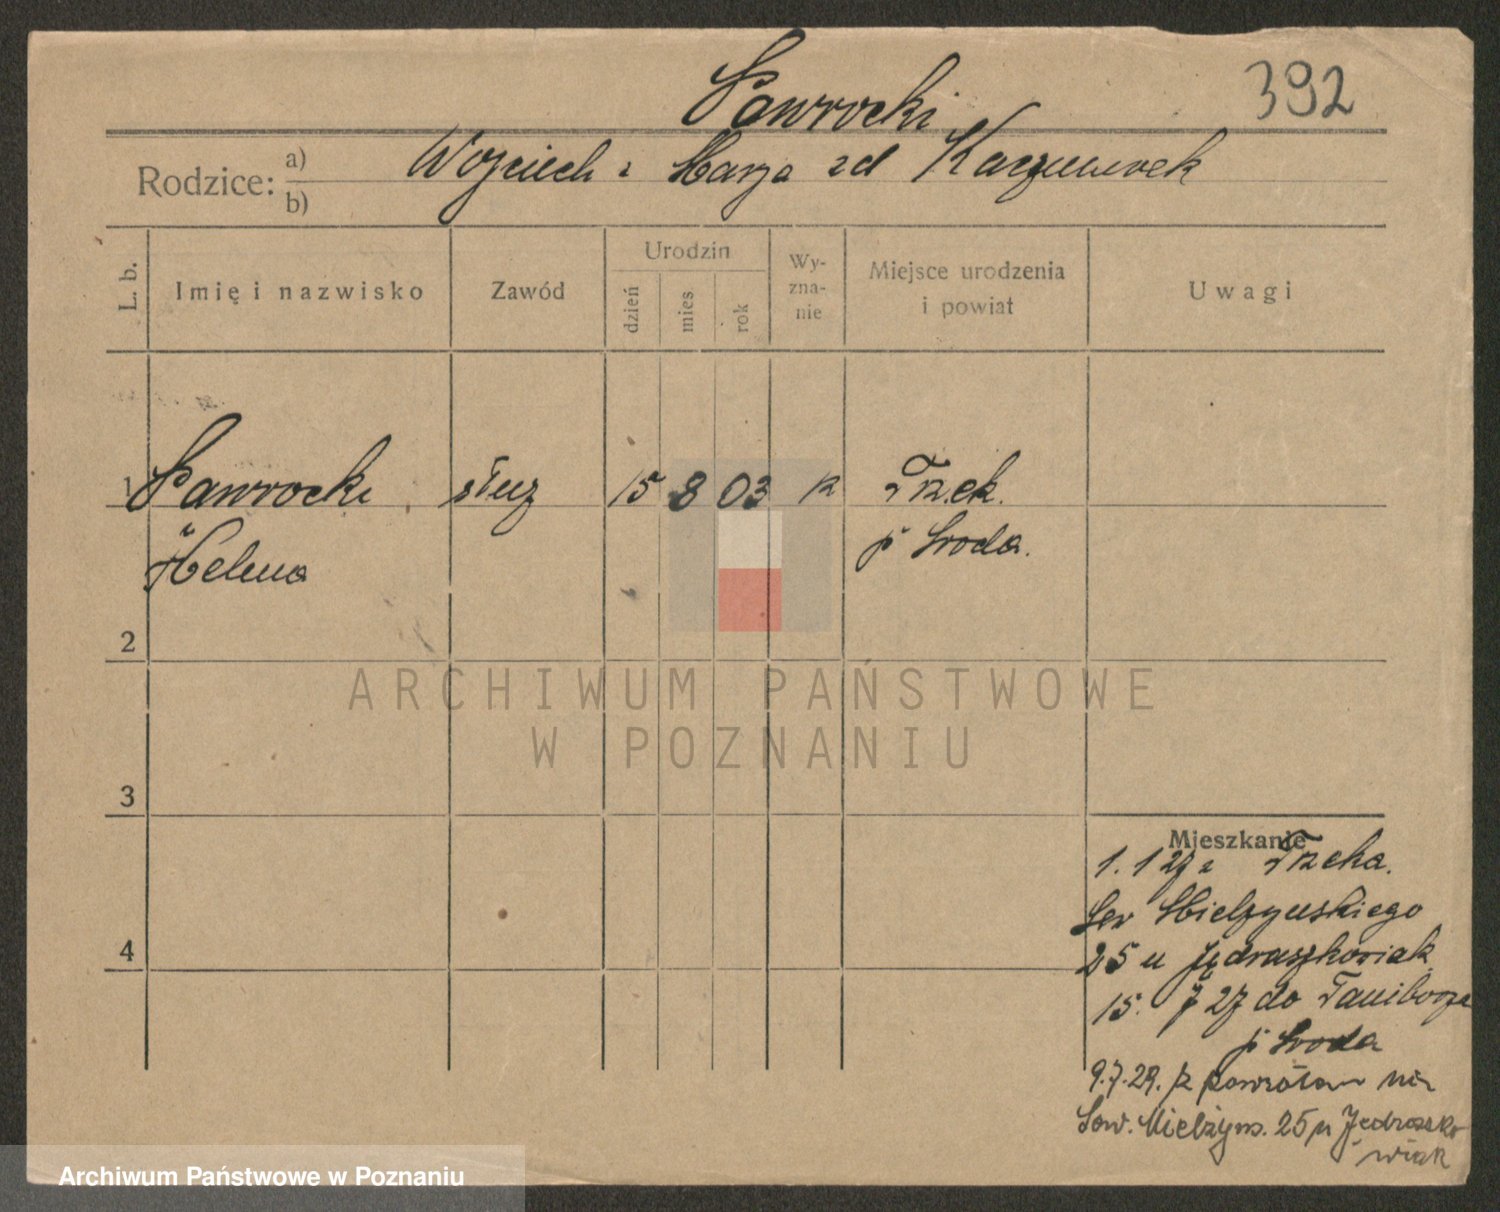 Sawrocki
392
Rodzice: a) b)
Wojciech i Marja zd Kaczmarek
L. b.
Imię i nazwisko
Zawód
Urodzin
dzień
mies
rok
Wy-
zna-
nie
Miejsce urodzenia
i powiat
Uwagi
1 Sawrocki służ 15 8 03 k Trzek.
Helena p Sroda.
2
3
4
Mieszkanie
1.1 27 z Trzeka.
Sew Mielzynskiego
25 u Jędraszkowiak
15. 7 27 do
p Sroda
9.7.29. z powrotem na
Sew. Mielżyns. 25 u Jedraszko
wiak
ARCHIWUM PAŃSTWOWE
W POZNANIU
Archiwum Państwowe w Poznaniu